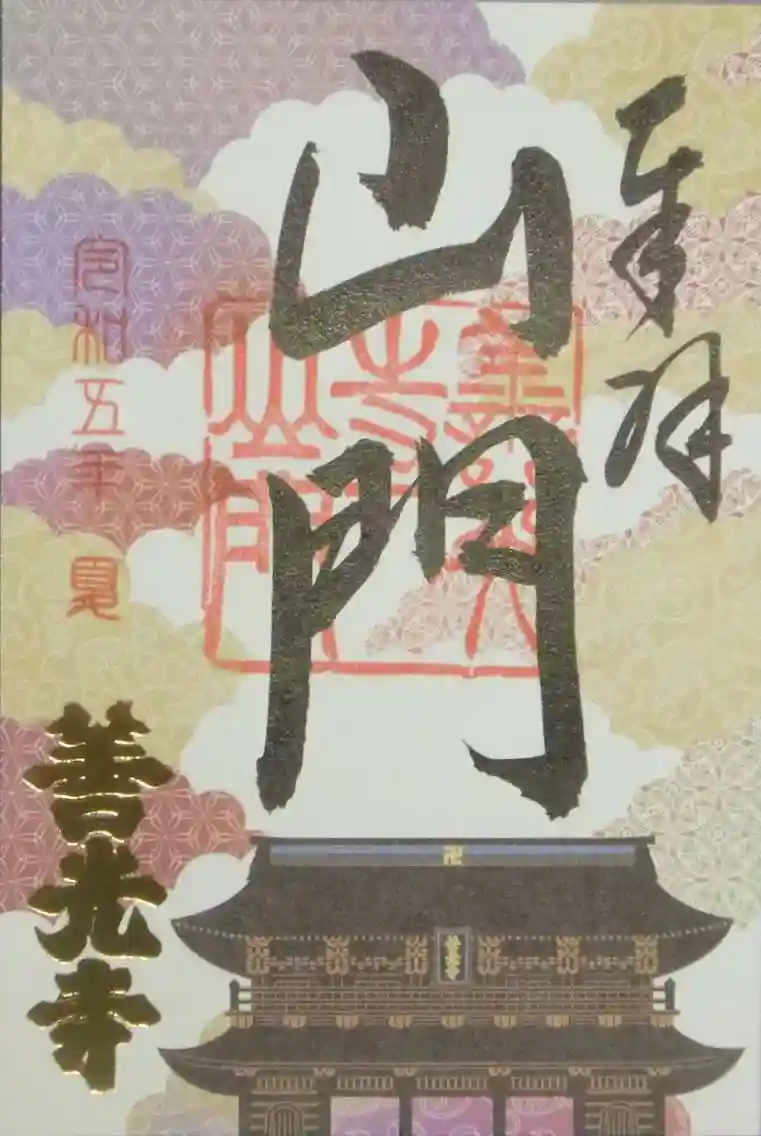 奉拝
山門
令和五年 夏
善光寺
善光寺